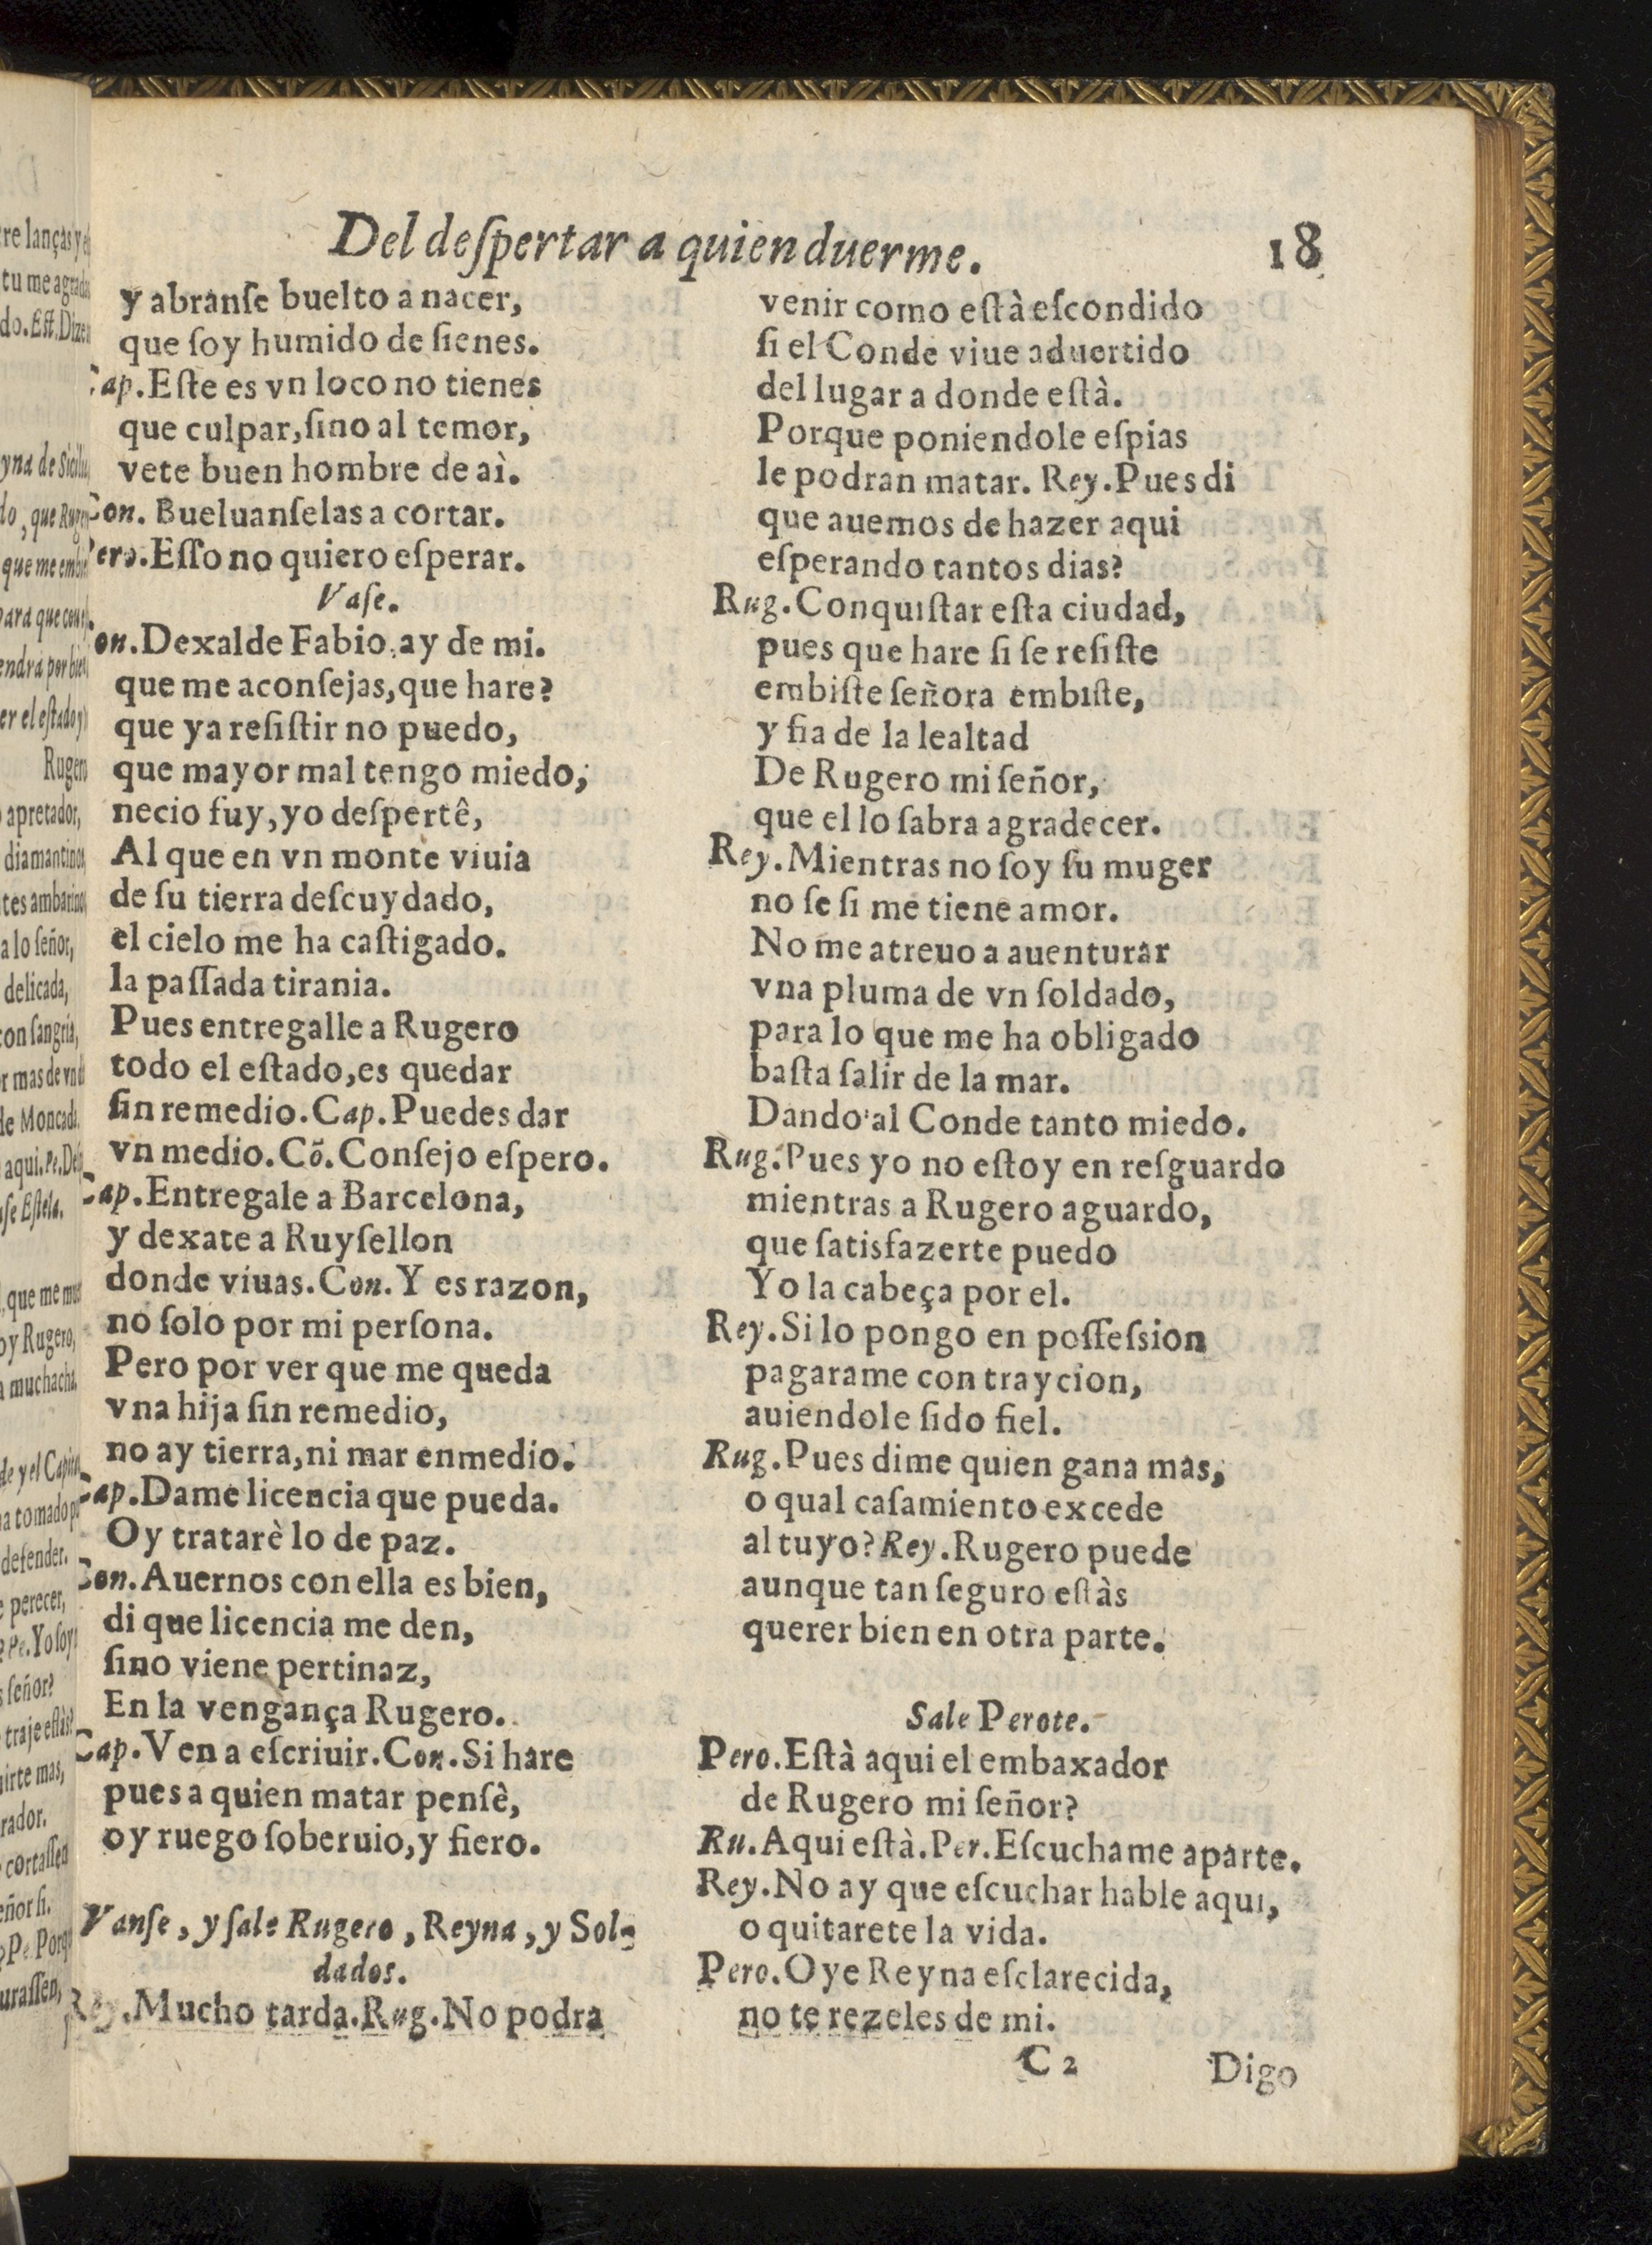 Del deſpertar a quien duerme. 18
y abranſe buelto a nacer,
que ſoy humido de ſienes.
Cap. Eſte es vn loco no tienes
que culpar, ſino al temor,
vete buen hombre de aì.
Con. Bueluanſelas a cortar.
Pero. Eſſo no quiero eſperar.
Vaſe.
Con. Dexalde Fabio, ay de mi.
que me aconſejas, que hare?
que ya reſiſtir no puedo,
que mayor mal tengo miedo,
necio fuy, yo deſpertê,
Al que en vn monte viuia
de ſu tierra deſcuydado,
el cielo me ha caſtigado.
la paſſada tirania.
Pues entregalle a Rugero
todo el eſtado, es quedar
ſin remedio. Cap. Puedes dar
vn medio. Cõ. Conſejo eſpero.
Cap. Entregale a Barcelona,
y dexate a Ruyſellon
donde viuas. Con. Y es razon,
no ſolo por mi perſona.
Pero por ver que me queda
vna hija ſin remedio,
no ay tierra, ni mar enmedio.
Cap. Dame licencia que pueda.
Oy tratarè lo de paz.
Con. Auernos con ella es bien,
di que licencia me den,
ſino viene pertinaz,
En la vengança Rugero.
Cap. Ven a eſcriuir. Con. Si hare
pues a quien matar penſè,
oy ruego ſoberuio, y fiero.
Vanſe, y ſale Rugero, Reyna, y Sol-
dados.
Rey. Mucho tarda. Rug. No podra
venir como eſtà eſcondido
ſi el Conde viue aduertido
del lugar a donde eſtà.
Porque poniendole eſpias
le podran matar. Rey. Pues di
que auemos de hazer aqui
eſperando tantos dias?
Rug. Conquiſtar eſta ciudad,
pues que hare ſi ſe reſiſte
embiſte ſeñora embiſte,
y fia de la lealtad
De Rugero mi ſeñor,
que el lo ſabra agradecer.
Rey. Mientras no ſoy ſu muger
no ſe ſi me tiene amor.
No me atreuo a auenturar
vna pluma de vn ſoldado,
para lo que me ha obligado
baſta ſalir de la mar.
Dando al Conde tanto miedo.
Rug. Pues yo no eſtoy en reſguardo
mientras a Rugero aguardo,
que ſatisfazerte puedo
Yo la cabeça por el.
Rey. Si lo pongo en poſſeſsion
pagarame con traycion,
auiendole ſido fiel.
Rug. Pues dime quien gana mas,
o qual caſamiento excede
al tuyo? Rey. Rugero puede
aunque tan ſeguro eſtàs
querer bien en otra parte.
Sale Perote.
Pero. Eſtà aqui el embaxador
de Rugero mi ſeñor?
Ru. Aqui eſtà. Per. Eſcuchame aparte.
Rey. No ay que eſcuchar hable aqui,
o quitarete la vida.
Pero. Oye Reyna eſclarecida,
no te rezeles de mi.
C 2 Digo